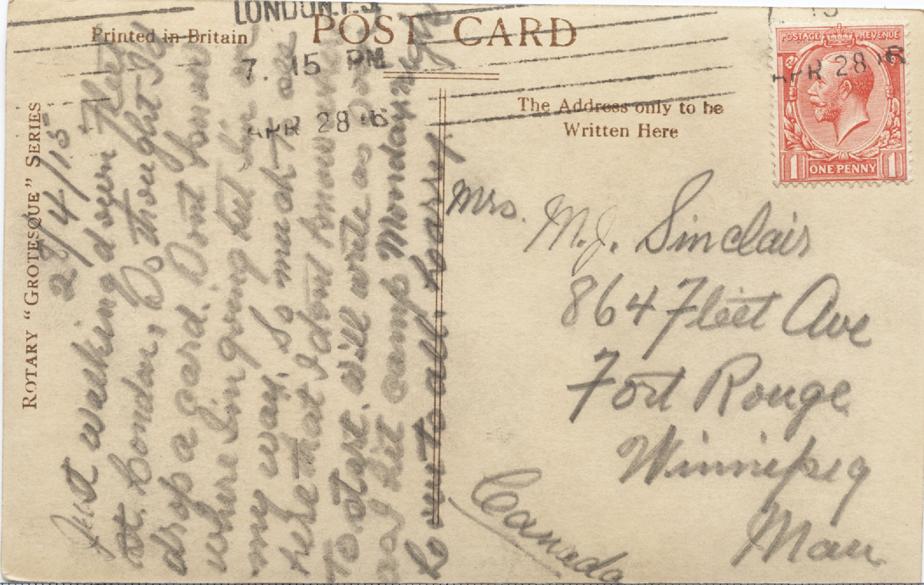 LONDON.F.S
7. 15 PM
APR 28 16
POST CARD
Printed in Britain
The Address only to be
Written Here
APR 28 16
POSTAGE REVENUE
1 ONE PENNY 1
ROTARY "GROTESQUE" SERIES
28/4/15
Just walking down Fleet
St. London, So thought I'd
drop a card. Dont know
where I'm going but I'm on
my way. So much to see
here that I dont know where
To start. Will write as soon
as I hit camp Monday night
Love to all. Harry.
Mrs. M.J. Sinclair
864 Fleet Ave
Fort Rouge
Winnipeg
Man
Canada